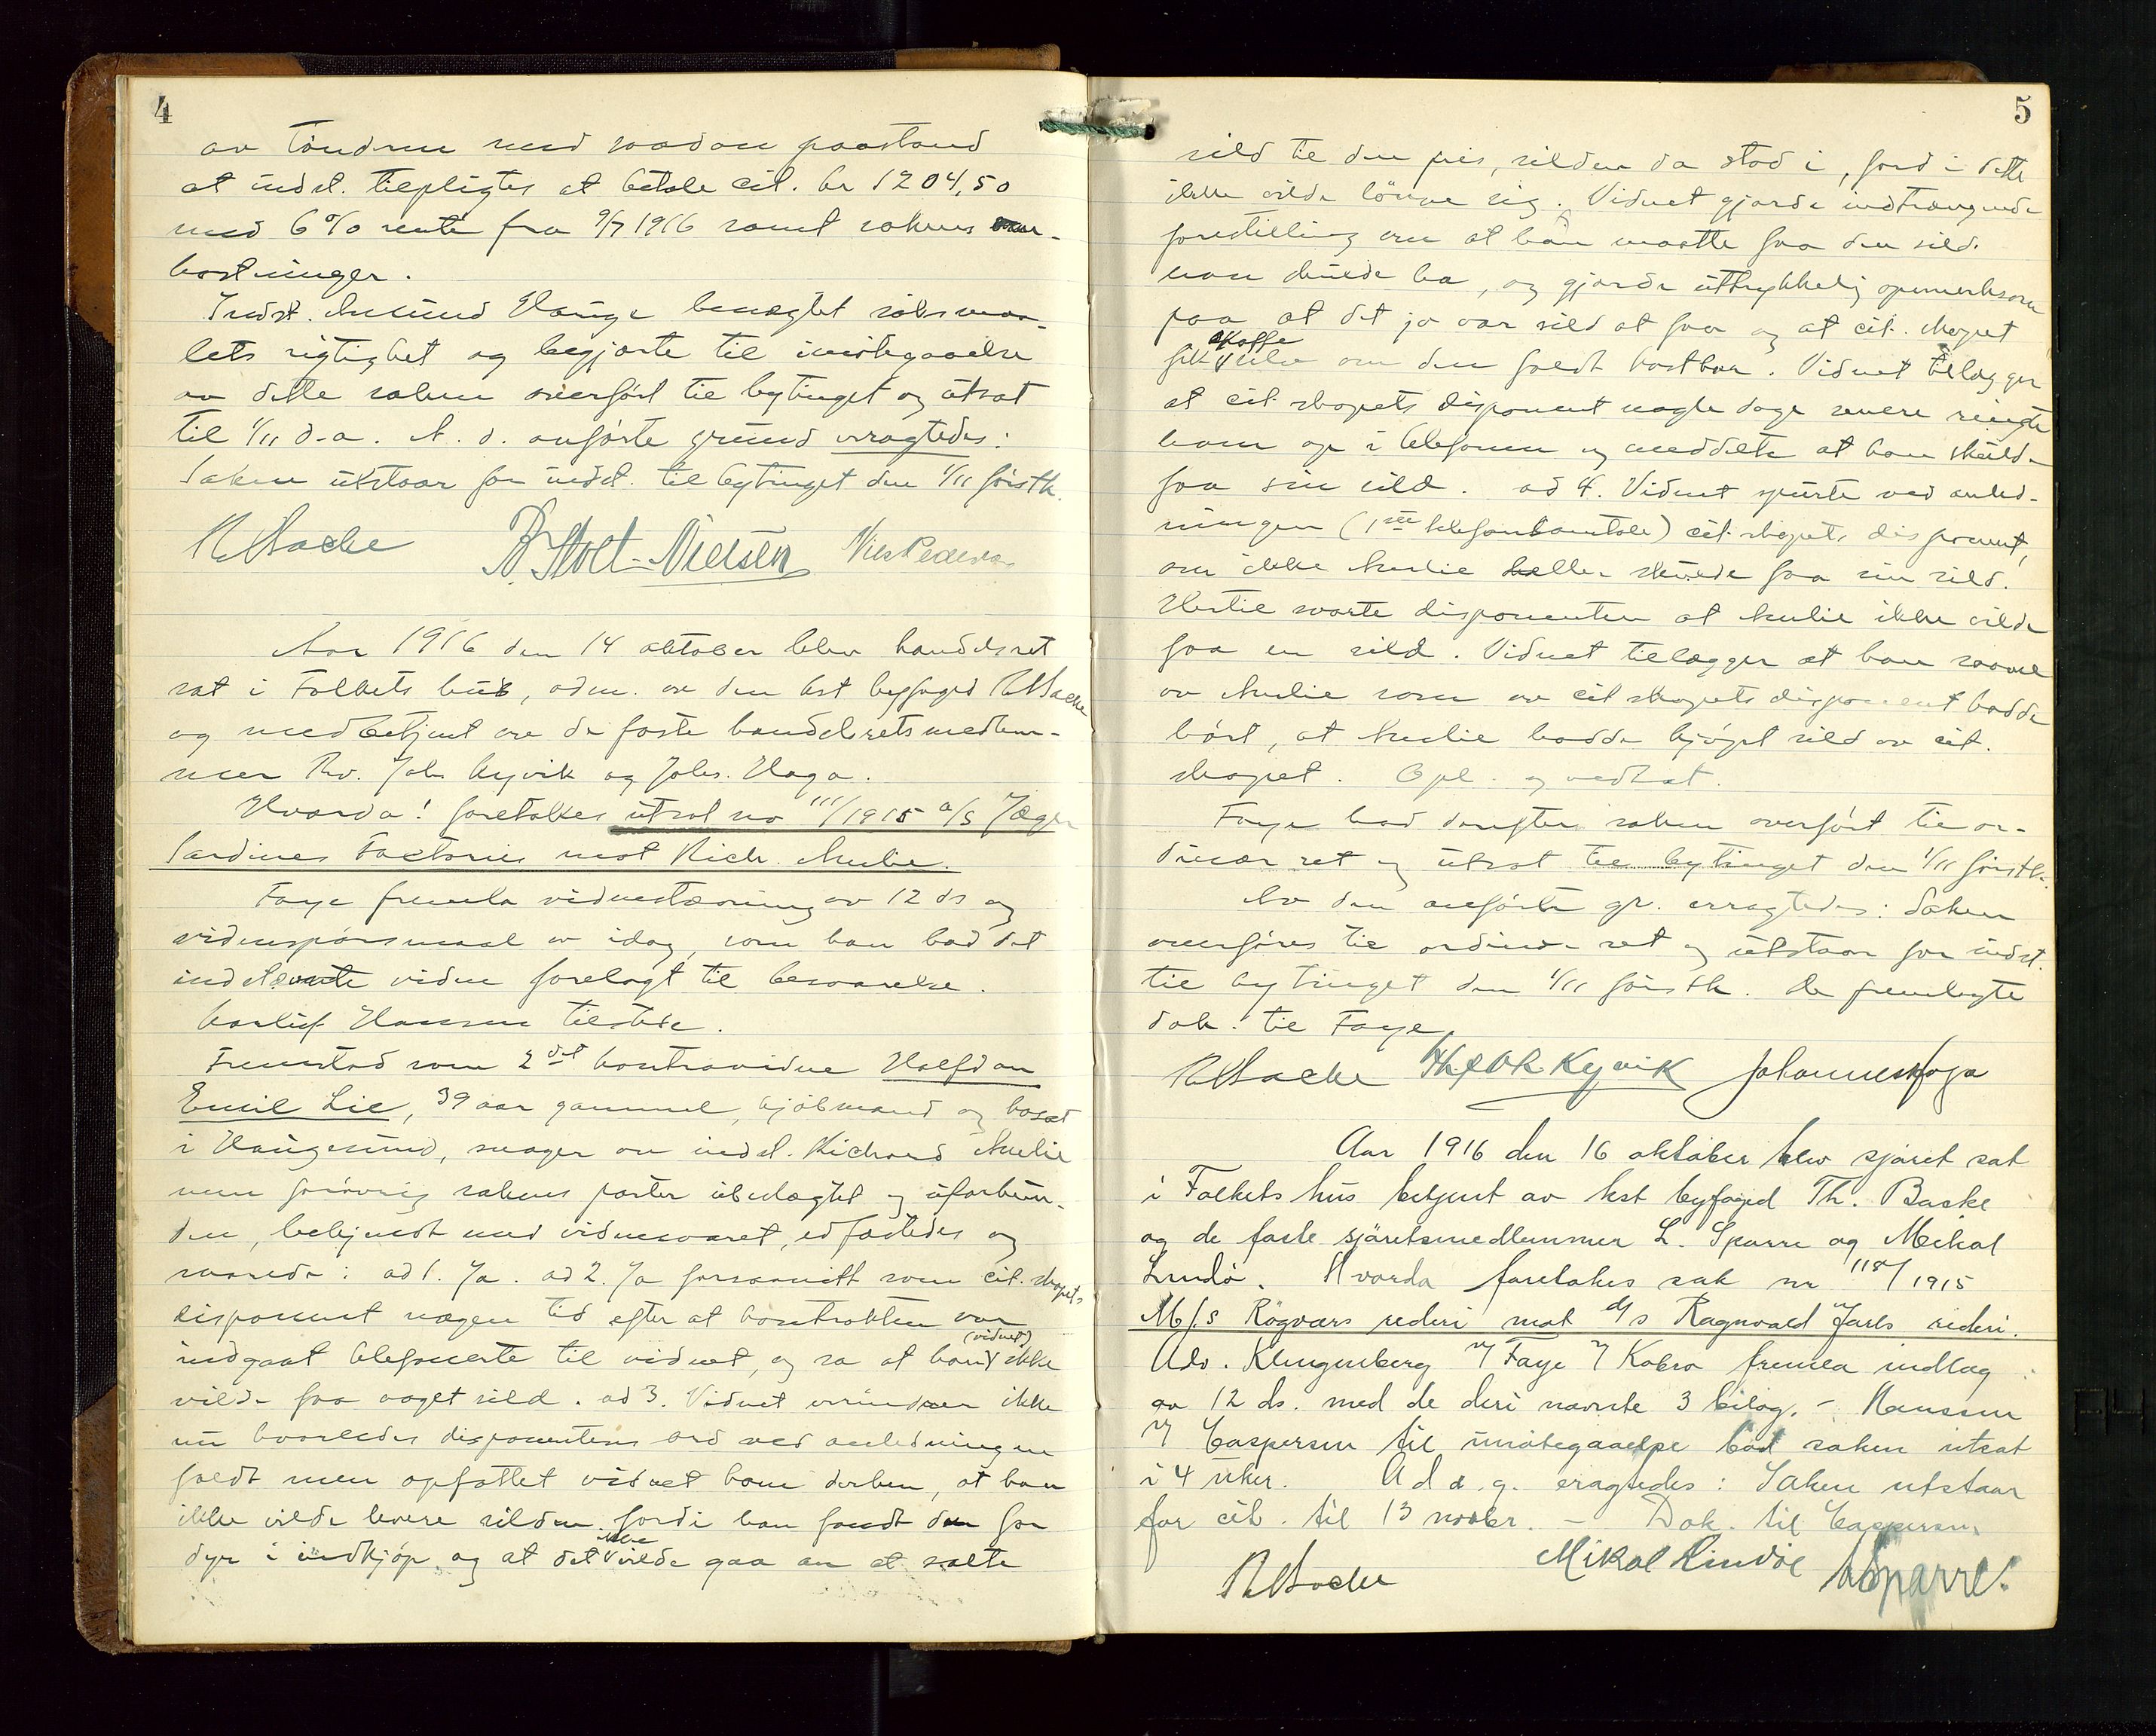 4
av tøndren med saadan paastand
at indst. tilpligtes at betale cit. kr 1204,50
med 6% rente fra 9/7 1916 samt sakens om-
kostninger.
Indst. Amund Hauge benegtet søksmaa-
lets rigtighet og begjærte til imøtegaaelse
av dette saken overført til bytinget og utsat
til 1/11 d.a. A. d. anførte grund eragtedes:
Saken utstaar for indst. til bytinget den 1/11 førstk.
R Baske B. Stolt-Nielsen Nils Pedersen
Aar 1916 den 14 oktober blev handelsret
sat i Folkets hus, adm. av den kst byfoged R Baske
og medbetjent av de faste handelsretsmedlem-
mer Rv. Joh. Kyvik og Johs. Haga.
Hvorda! foretokes utsat no 111/1915 a/s Jæger
Sardines Factories mot Rich. Amlie.
Faye fremla vidnestævning av 12 ds og
vidnespørsmaal av idag, som han bad det
indstævnte vidne forelagt til besvarelse.
Karluf Hansen tilstede.
Fremstod som 2det kontravidne Halfdan
Emil Lie, 39 aar gammel, kjøbmand og bosat
i Haugesund, svoger av indst. Richard Amlie
men forøvrig sakens parter ubeslægtet og uforbun-
den, bekjendt med vidneansvaret, edfæstedes og
svarede: ad 1. Ja. ad 2. Ja forsaavitt som cit.skapets
disponent nogen tid efter at kontrakten var
indgaat telefonerte til vidnet, og sa at han (vidnet) ikke
vilde faa noget sild. ad 3. Vidnet erindrer ikke
nu hvorledes disponentens ord ved anledningen
faldt men opfattet vidnet ham derhen, at han
ikke vilde levere silden fordi han fandt den for
dyr i indkjøp og at det ikke vilde gaa an at salte
5
sild til den pris, silden da stod i, fordi dette
ikke vilde lønne sig. Vidnet gjorde indtrængende
forestilling om at han maatte faa den sild.
han skulde ha, og gjorde uttrykkelig opmerksom
paa at det jo var sild at faa og at cit.skapet
fik skaffe sild om den faldt kostbar. Vidnet tilægger
at cit.skapets disponent nogle dage senere ringte
ham op i telefonen og meddelte at han skulde
faa sin sild. ad 4. Vidnet spurte ved anled-
ningen (1ste telefonsamtale) cit.skapets disponent,
om ikke Amlie heller skulde faa sin sild.
Hertil svarte disponenten at Amlie ikke vilde
faa en sild. Vidnet tilægger at han saavel
av Amlie som av cit.skapets disponent hadde
hørt, at Amlie hadde kjøpt sild av cit.
skapet. Opl. og vedtat.
Faye bad derefter saken overført til or-
dinær ret og utsat til bytinget den 1/11 førstk.
Av den anførte gr. eragtedes: Saken
overføres til ordinær ret og utstaar for indst.
til bytinget den 1/11 førstk. De fremlagte
dok. til Faye.
R Baske Kyvik Johannes Haga
Aar 1916 den 16 oktober blev sjøret sat
i Folkets hus betjent av kst byfoged Th. Baske
og de faste sjøretsmedlemmer L. Sparre og Mikal
Lindø. Hvorda foretokes sak nr 118/1915
M/S Røgværs rederi mot d/s Ragnvald Jarls rederi.
Adv. Klingenberg v/ Faye v/ Kobro fremla indlæg
av 12 ds. med de deri nævnte 3 bilag. – Hanssen
v/ Caspersen til imøtegaaelse bad saken utsat
i 4 uker. A d a. g. eragtedes: Saken utstaar
for cit. til 13 novbr. – Dok. til Caspersen.
R Baske Mikal Lindøe L Sparre.